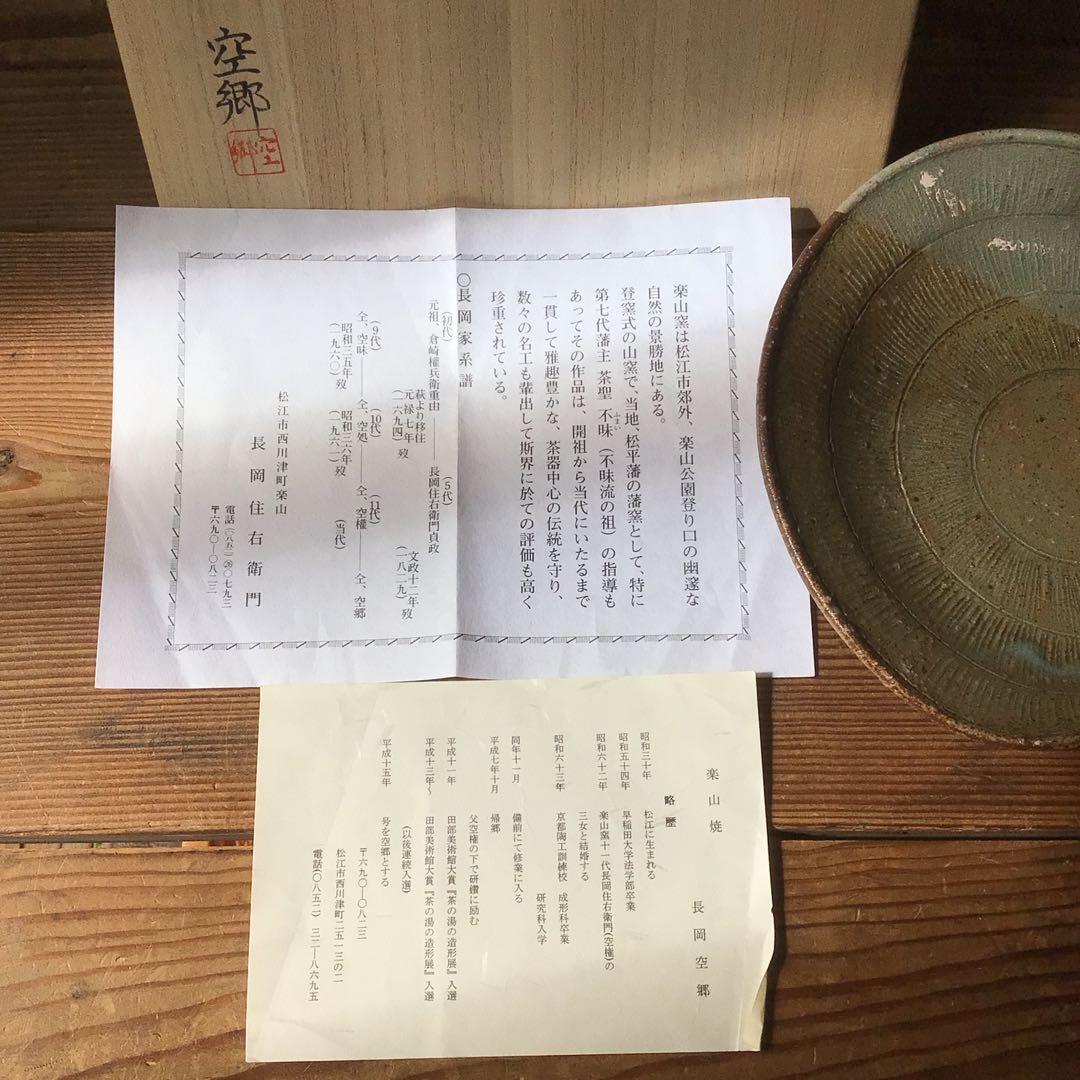 空郷
空郷
楽山窯は松江市郊外、楽山公園登り口の幽邃な
自然の景勝地にある。
登窯式の山窯で、当地、松平藩の藩窯として、特に
第七代藩主 茶聖 不昧（不昧流の祖）の指導も
ふまい
あってその作品は、開祖から当代にいたるまで
一貫して雅趣豊かな、茶器中心の伝統を守り、
数々の名工も輩出して斯界に於ての評価も高く
珍重されている。
〇長岡家系譜
（初代）
元祖、倉崎權兵衛重由
萩より移住
元禄七年歿
（一六九四）
（5代）
長岡住右衛門貞政
文政十二年歿
（一八二九）
（9代）
仝、空味
昭和三五年歿
（一九六〇）
（10代）
仝、空処
昭和三六年歿
（一九六一）
（11代）
仝、空權
（当代）
仝、空郷
松江市西川津町楽山
長岡住右衛門
電話（〇八五二）㉖〇七九三
〒六九〇―〇八二三
楽山焼 長岡空郷
略歴
昭和三十年 松江に生まれる
昭和五十四年 早稲田大学法学部卒業
昭和六十二年 楽山窯十一代長岡住右衛門(空権)の
三女と結婚する
昭和六十三年 京都陶工訓練校 成形科卒業
研究科入学
同年十一月 備前にて修業に入る
平成七年十月 帰郷
父空権の下で研鑽に励む
平成十一年 田部美術館大賞『茶の湯の造形展』入選
平成十三年〜 田部美術館大賞『茶の湯の造形展』入選
(以後連続入選)
平成十五年 号を空郷とする
〒六九〇―〇八二三
松江市西川津町二五一三の二
電話(〇八五二) 三二―八六九五